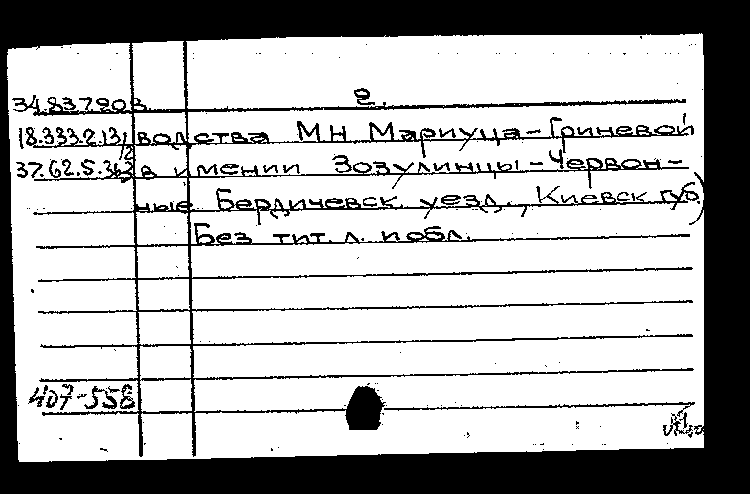 34.837.208. 2.
18.333.2.131/2 водства МН Мариуца-Гриневой
37.62.5.363 в имении Зозулинцы-Червон-
ные Бердичевск. уезд., Киевск. губ)
Без тит. л. и обл.
407-558